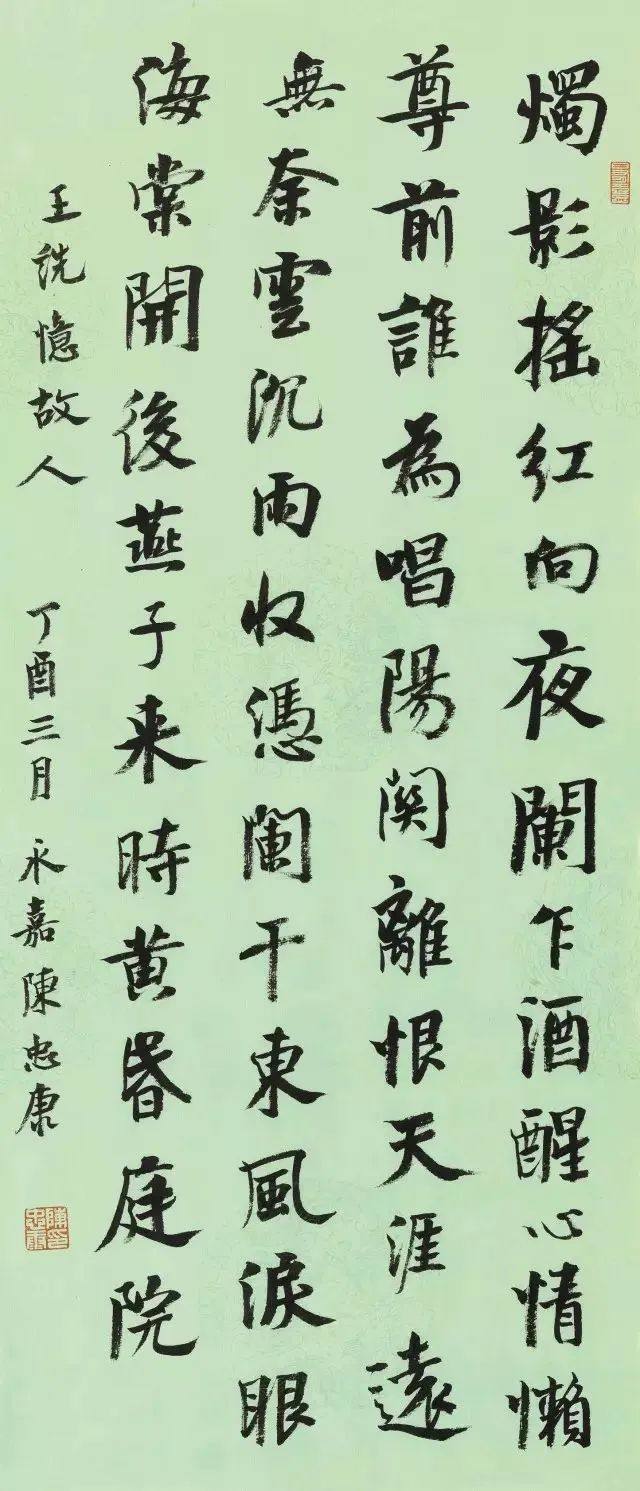 燭影搖紅向夜闌乍酒醒心情懶
尊前誰為唱陽関離恨天涯遠
無奈雲沉雨收憑闌干東風淚眼
海棠開後燕子来時黄昏庭院
王詵憶故人
丁酉三月 永嘉陳忠康
陳忠康印